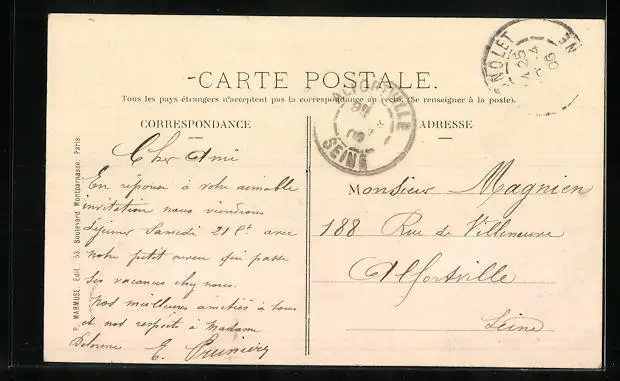 CARTE POSTALE.
Tous les pays étrangers n'acceptent pas la correspondance au recto. (Se renseigner à la poste).
CORRESPONDANCE
ADRESSE
P. MARMUSE. Edit. 53, Boulevard Montparnasse. Paris
ALFORTVILLE
SEINE
NOLET
Cher Ami
En réponse à votre aimable
invitation nous viendrons
déjeuner Samedi 21 Ct avec
notre petit neveu qui passe
ses vacances chez nous.
Nos meilleures amitiés à tous
et nos respects à Madame
Delorme E.
Monsieur Magnien
188 Rue de Villeneuve
Alfortville
Seine